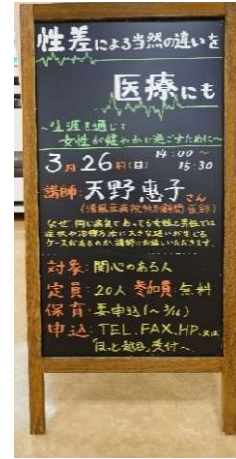 性差による当然の違いを
医療にも
～生涯を通じて
女性が健やかに過ごすために～
3月26日(日) 14:00～15:30
講師:天野惠子さん
(静風荘病院特別顧問 医師)
なぜ、同じ病気であっても女性と男性では
症状や治療方法に大きな違いが生じる
ケースがあるのか、講師にお話しいただきます。
対象:関心のある人
定員:20人 参加費:無料
保育:要申込(～3/16)
申込:TEL、FAX、HP、又は
「ほっと越谷」受付へ